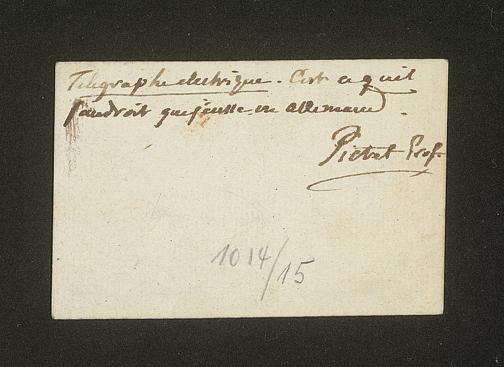 Telegraphe electrique. C'est ce qu'il
faudroit que j'eusse en allemand.
Pictet Prof.
1014/15